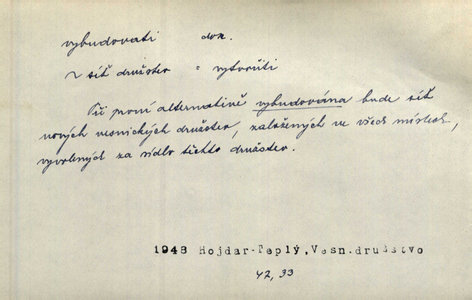 vybudovati dok.
~ síť družstev = vytvořiti
Při první alternativě vybudována bude síť
nových vesnických družstev, založených ve všech místech,
vyvolených za sídlo těchto družstev.
1948 Hojdar-Teplý, Vesn.družstvo
42, 33